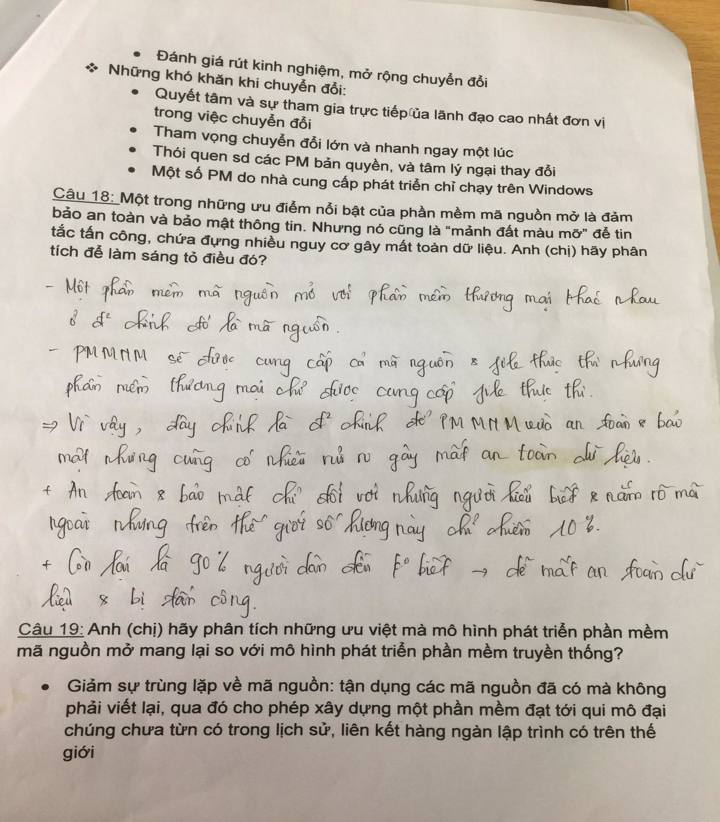 • Đánh giá rút kinh nghiệm, mở rộng chuyển đổi
❖ Những khó khăn khi chuyển đổi:
• Quyết tâm và sự tham gia trực tiếp của lãnh đạo cao nhất đơn vị
trong việc chuyển đổi
• Tham vọng chuyển đổi lớn và nhanh ngay một lúc
• Thói quen sd các PM bản quyền, và tâm lý ngại thay đổi
• Một số PM do nhà cung cấp phát triển chỉ chạy trên Windows
Câu 18: Một trong những ưu điểm nổi bật của phần mềm mã nguồn mở là đảm
bảo an toàn và bảo mật thông tin. Nhưng nó cũng là “mảnh đất màu mỡ” để tin
tắc tấn công, chứa đựng nhiều nguy cơ gây mất toàn dữ liệu. Anh (chị) hãy phân
tích để làm sáng tỏ điều đó?
- Một phần mềm mã nguồn mở với phần mềm thương mại khác nhau
ở đ² chính đó là mã nguồn.
- PMMNM sẽ được cung cấp cả mã nguồn & file thực thi nhưng
phần mềm thương mại chỉ được cung cấp file thực thi.
⇒ Vì vậy, đây chính là đ² chính để PMMNM an toàn & bảo
mật nhưng cũng có nhiều rủi ro gây mất an toàn dữ liệu.
+ An toàn & bảo mật chỉ đối với những người hiểu biết & nắm rõ mã
ngoài nhưng trên thế giới số lượng này chỉ chiếm 10%.
+ Còn lại là 90% người dân đến k° biết → dễ mất an toàn dữ
liệu & bị tấn công.
Câu 19: Anh (chị) hãy phân tích những ưu việt mà mô hình phát triển phần mềm
mã nguồn mở mang lại so với mô hình phát triển phần mềm truyền thống?
• Giảm sự trùng lặp về mã nguồn: tận dụng các mã nguồn đã có mà không
phải viết lại, qua đó cho phép xây dựng một phần mềm đạt tới qui mô đại
chúng chưa từn có trong lịch sử, liên kết hàng ngàn lập trình có trên thế
giới